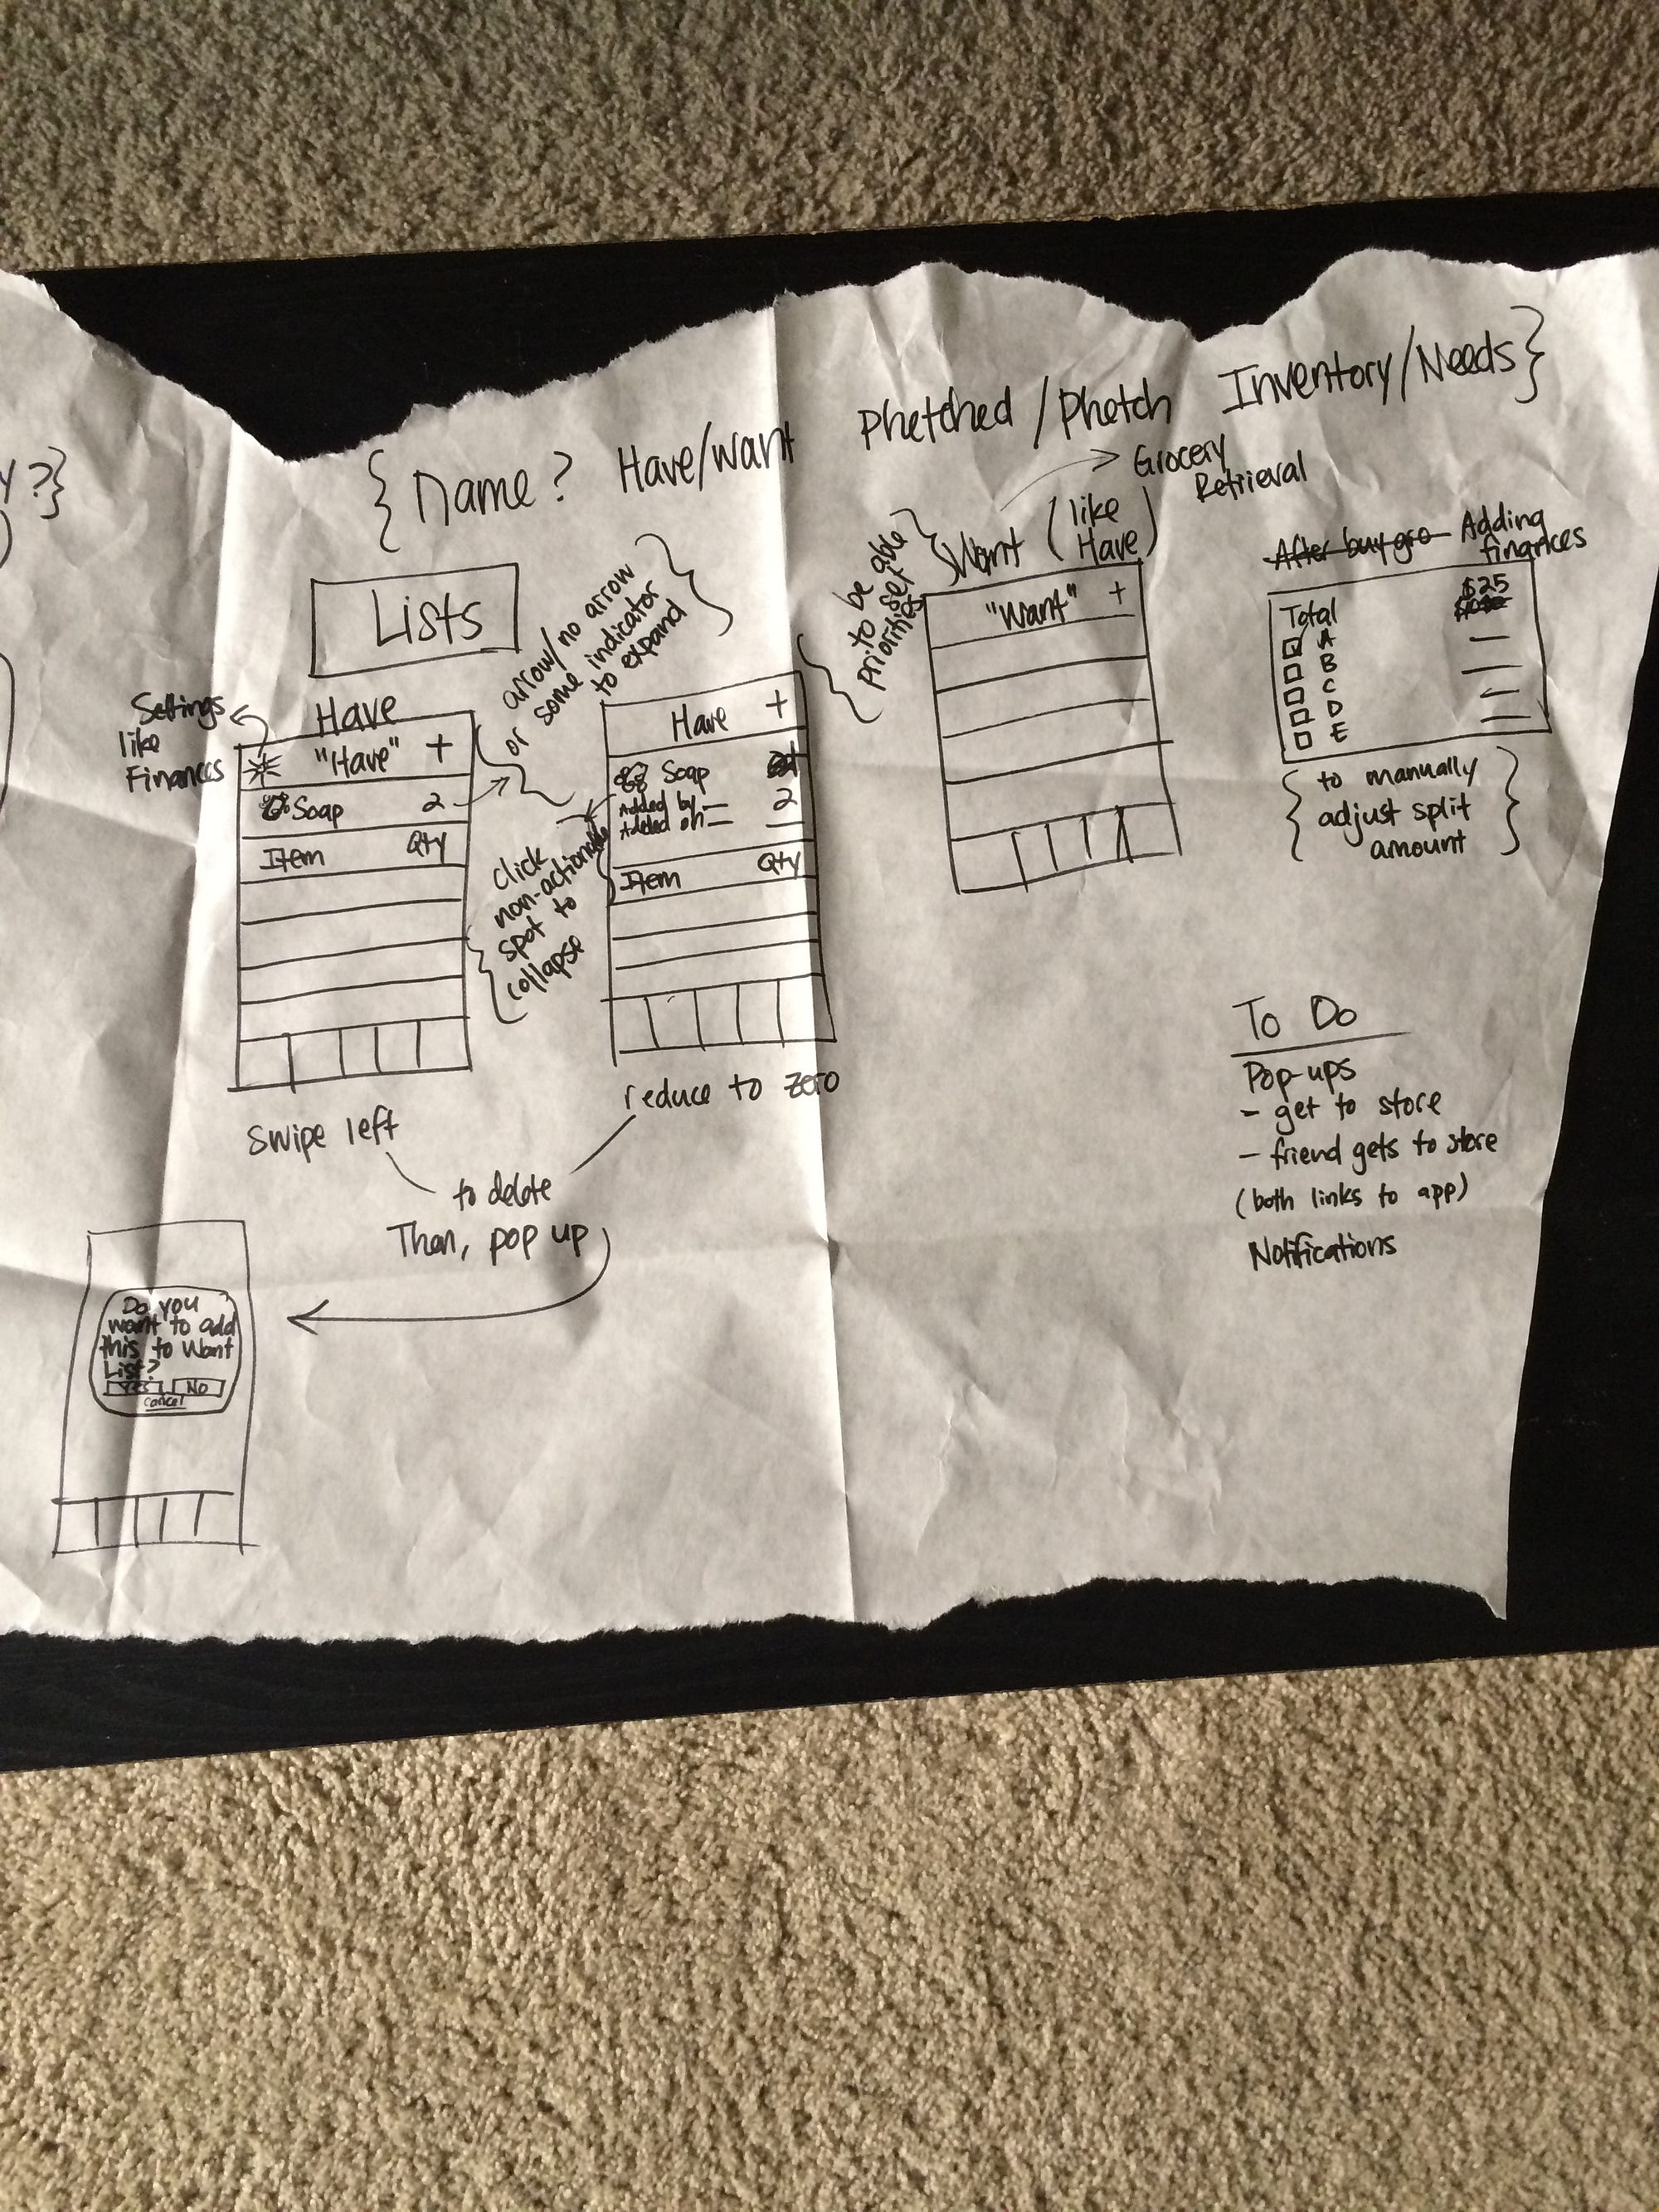 y?}
{Name? Have/want Phetched/Phetch Inventory/Needs}
Lists
Settings
like
Finances
Have
"Have" +
Soap 2
Item Qty
arrow/no arrow
or some indicator
to expand
click
non-actionable
spot to
collapse
Have +
Soap
Added by — 2
Added on —
Item Qty
to be able
to set
priorities
Want (like
Have)
Grocery
Retrieval
"Want" +
After buy gro Adding
finances
Total $25
A
B
C
D
E
{to manually
adjust split
amount}
Swipe left
reduce to zero
to delete
Then, pop up
Do you
want to add
this to Want
List?
Yes No
cancel
To Do
Pop-ups
- get to store
- friend gets to store
(both links to app)
Notifications